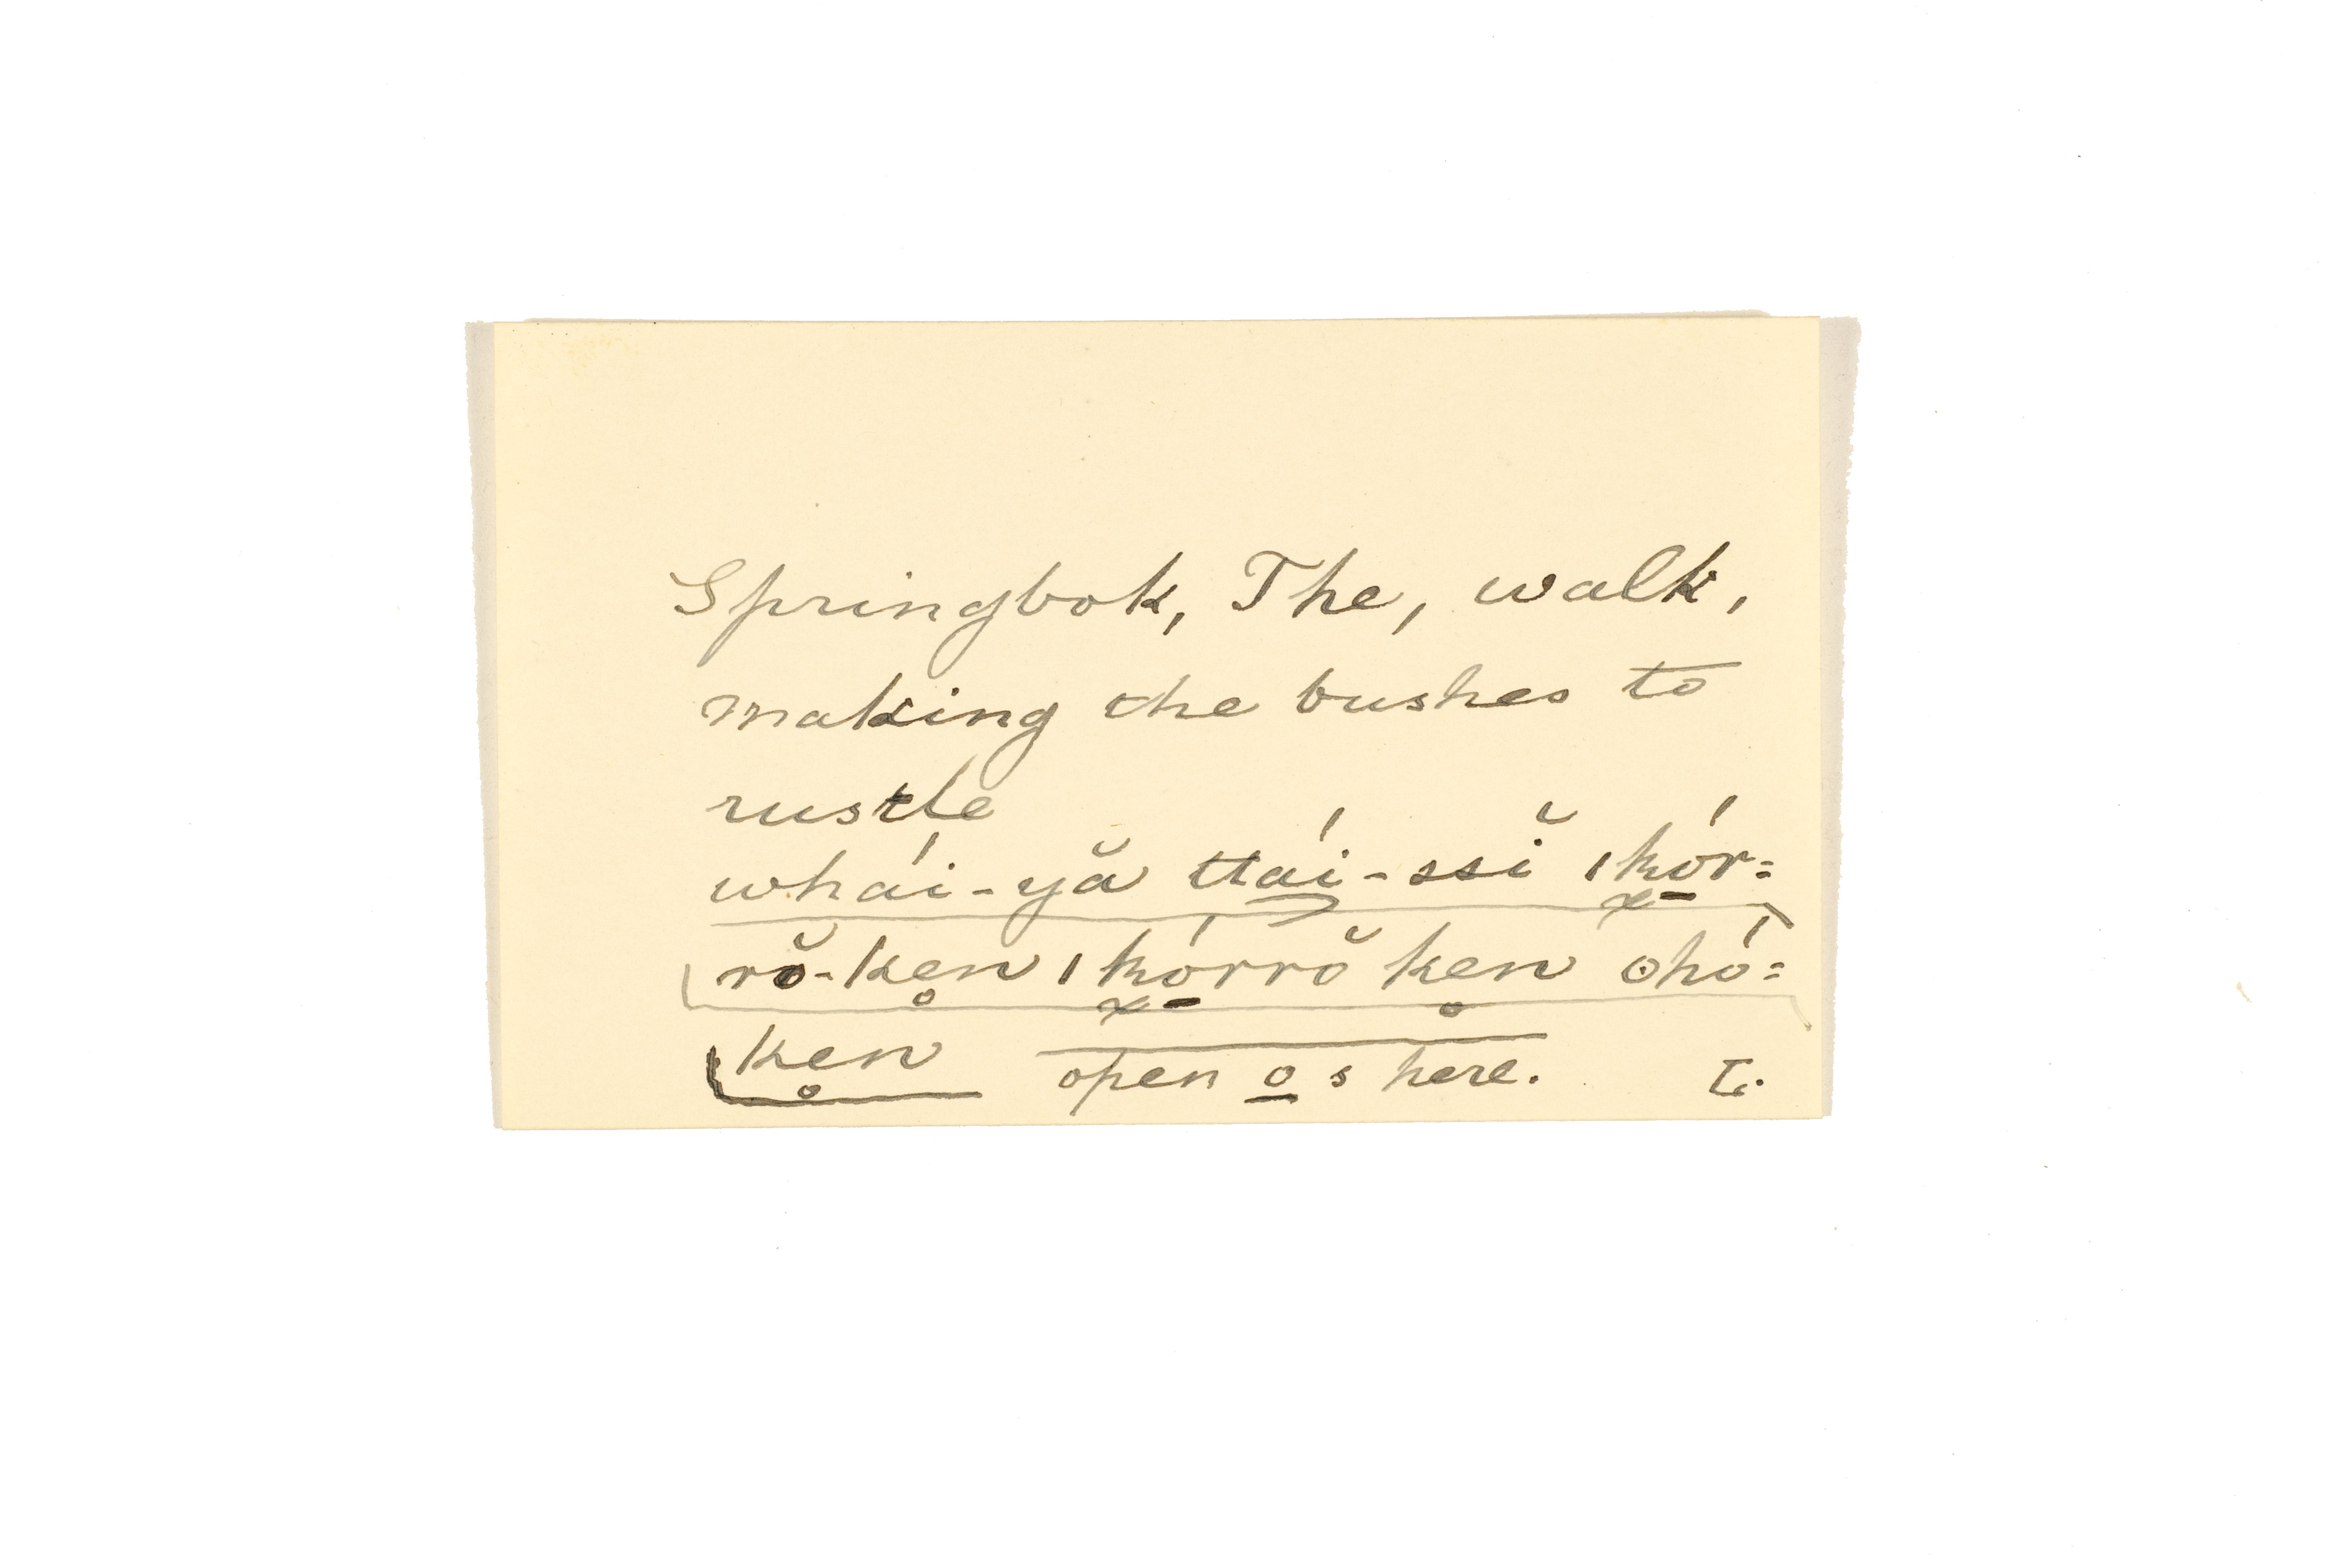 Springbok, The, walk,
making the bushes to
rustle
whái-yă ttái-ssĭ ǀk̲ór=
rŏ-ken̥ ǀk̲órrŏ ken̥ ʘhó=
ken̥ open o̲ s here. L.